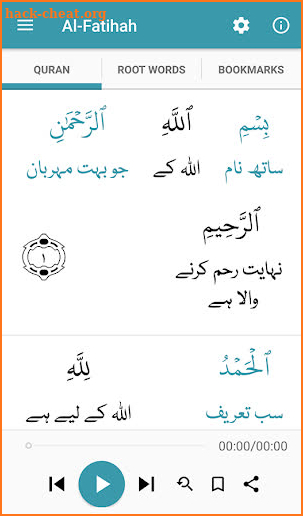 hack-cheat.org
Al-Fatihah
QURAN ROOT WORDS BOOKMARKS
بِسْمِ ٱللَّهِ ٱلرَّحْمَٰنِ
ساتھ نام اللہ کے جو بہت مہربان
ٱلرَّحِيمِ
نہایت رحم کرنے
والا ہے
١
ٱلْحَمْدُ لِلَّهِ
سب تعریف اللہ کے لیے ہے
00:00/00:00